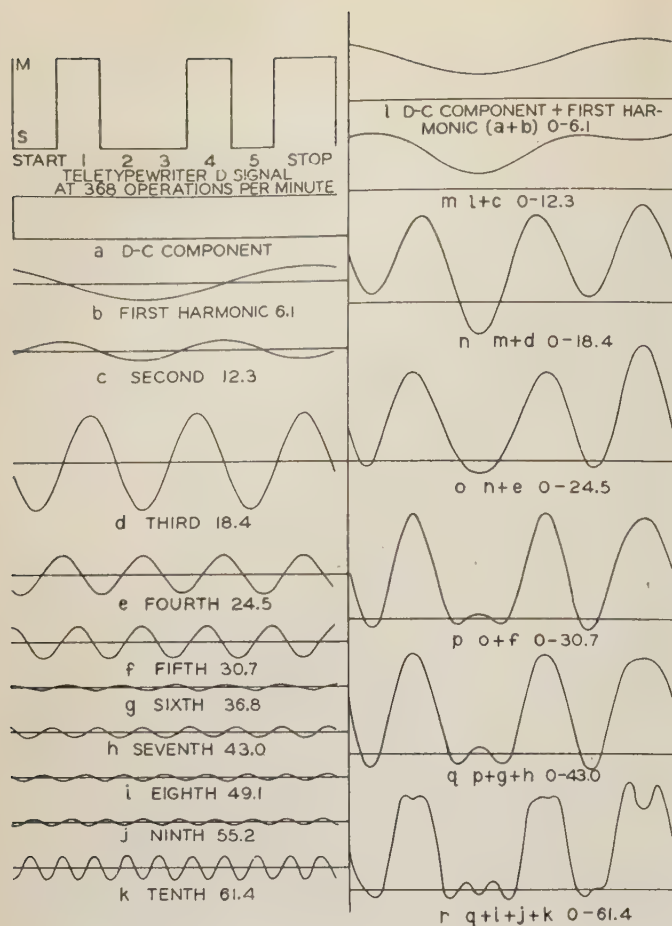 M
S
START 1 2 3 4 5 STOP
TELETYPEWRITER D SIGNAL
AT 368 OPERATIONS PER MINUTE
a D-C COMPONENT
b FIRST HARMONIC 6.1
c SECOND 12.3
d THIRD 18.4
e FOURTH 24.5
f FIFTH 30.7
g SIXTH 36.8
h SEVENTH 43.0
i EIGHTH 49.1
j NINTH 55.2
k TENTH 61.4
l D-C COMPONENT + FIRST HAR-
MONIC (a+b) 0-6.1
m l+c 0-12.3
n m+d 0-18.4
o n+e 0-24.5
p o+f 0-30.7
q p+g+h 0-43.0
r q+i+j+k 0-61.4